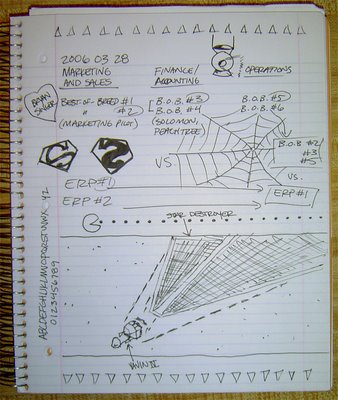 2006 03 28
MARKETING AND SALES
FINANCE/ ACCOUNTING
OPERATIONS
BRIAN
BEST-OF-BREED #1
" #2
(MARKETING PILOT)
B.O.B. #3
B.O.B. #4
(SOLOMON,
PEACHTREE)
B.O.B. #5
B.O.B. #6
B.O.B. #2/
#3
#5
VS
VS.
S
S
ERP #1
ERP #2
ERP #1
STAR DESTROYER
ABCDEFGHIJKLMNOPQRSTUVWXYZ
0123456789